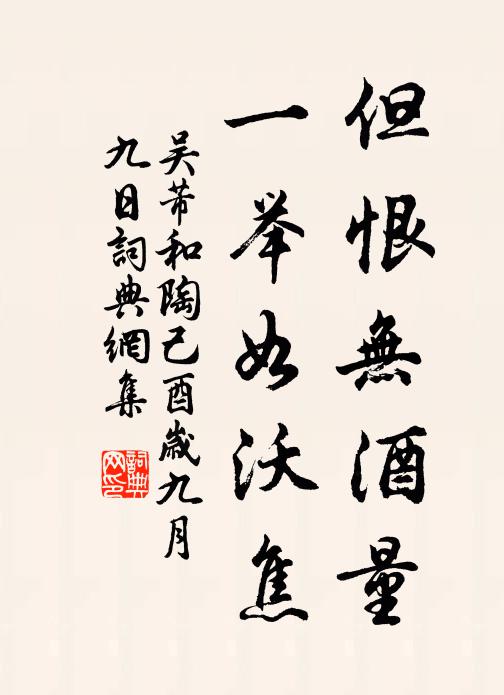 但恨無酒量
一举如沃焦
吴芾和陶己酉歲九月
九日詞典網集
詞典
网印